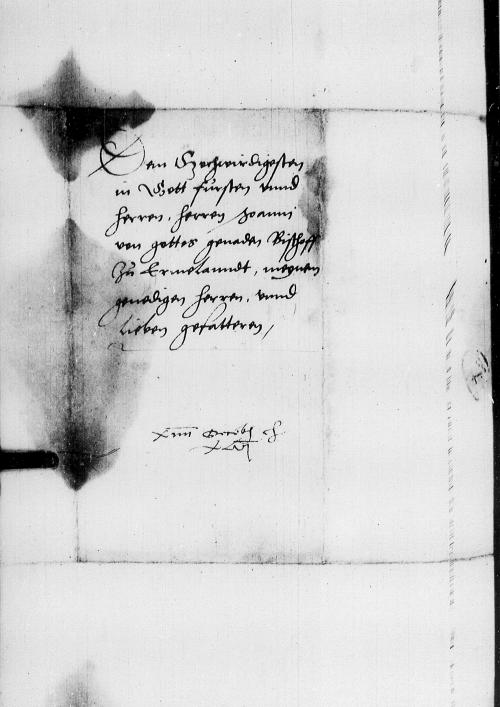 Dem Hochwirdigesten
in Gott fursten unnd
herren, herren Joanni
von gottes genaden Bisschoff
Zu Ermelanndt, meynen
genedigen herren, unnd
lieben gefatteren,